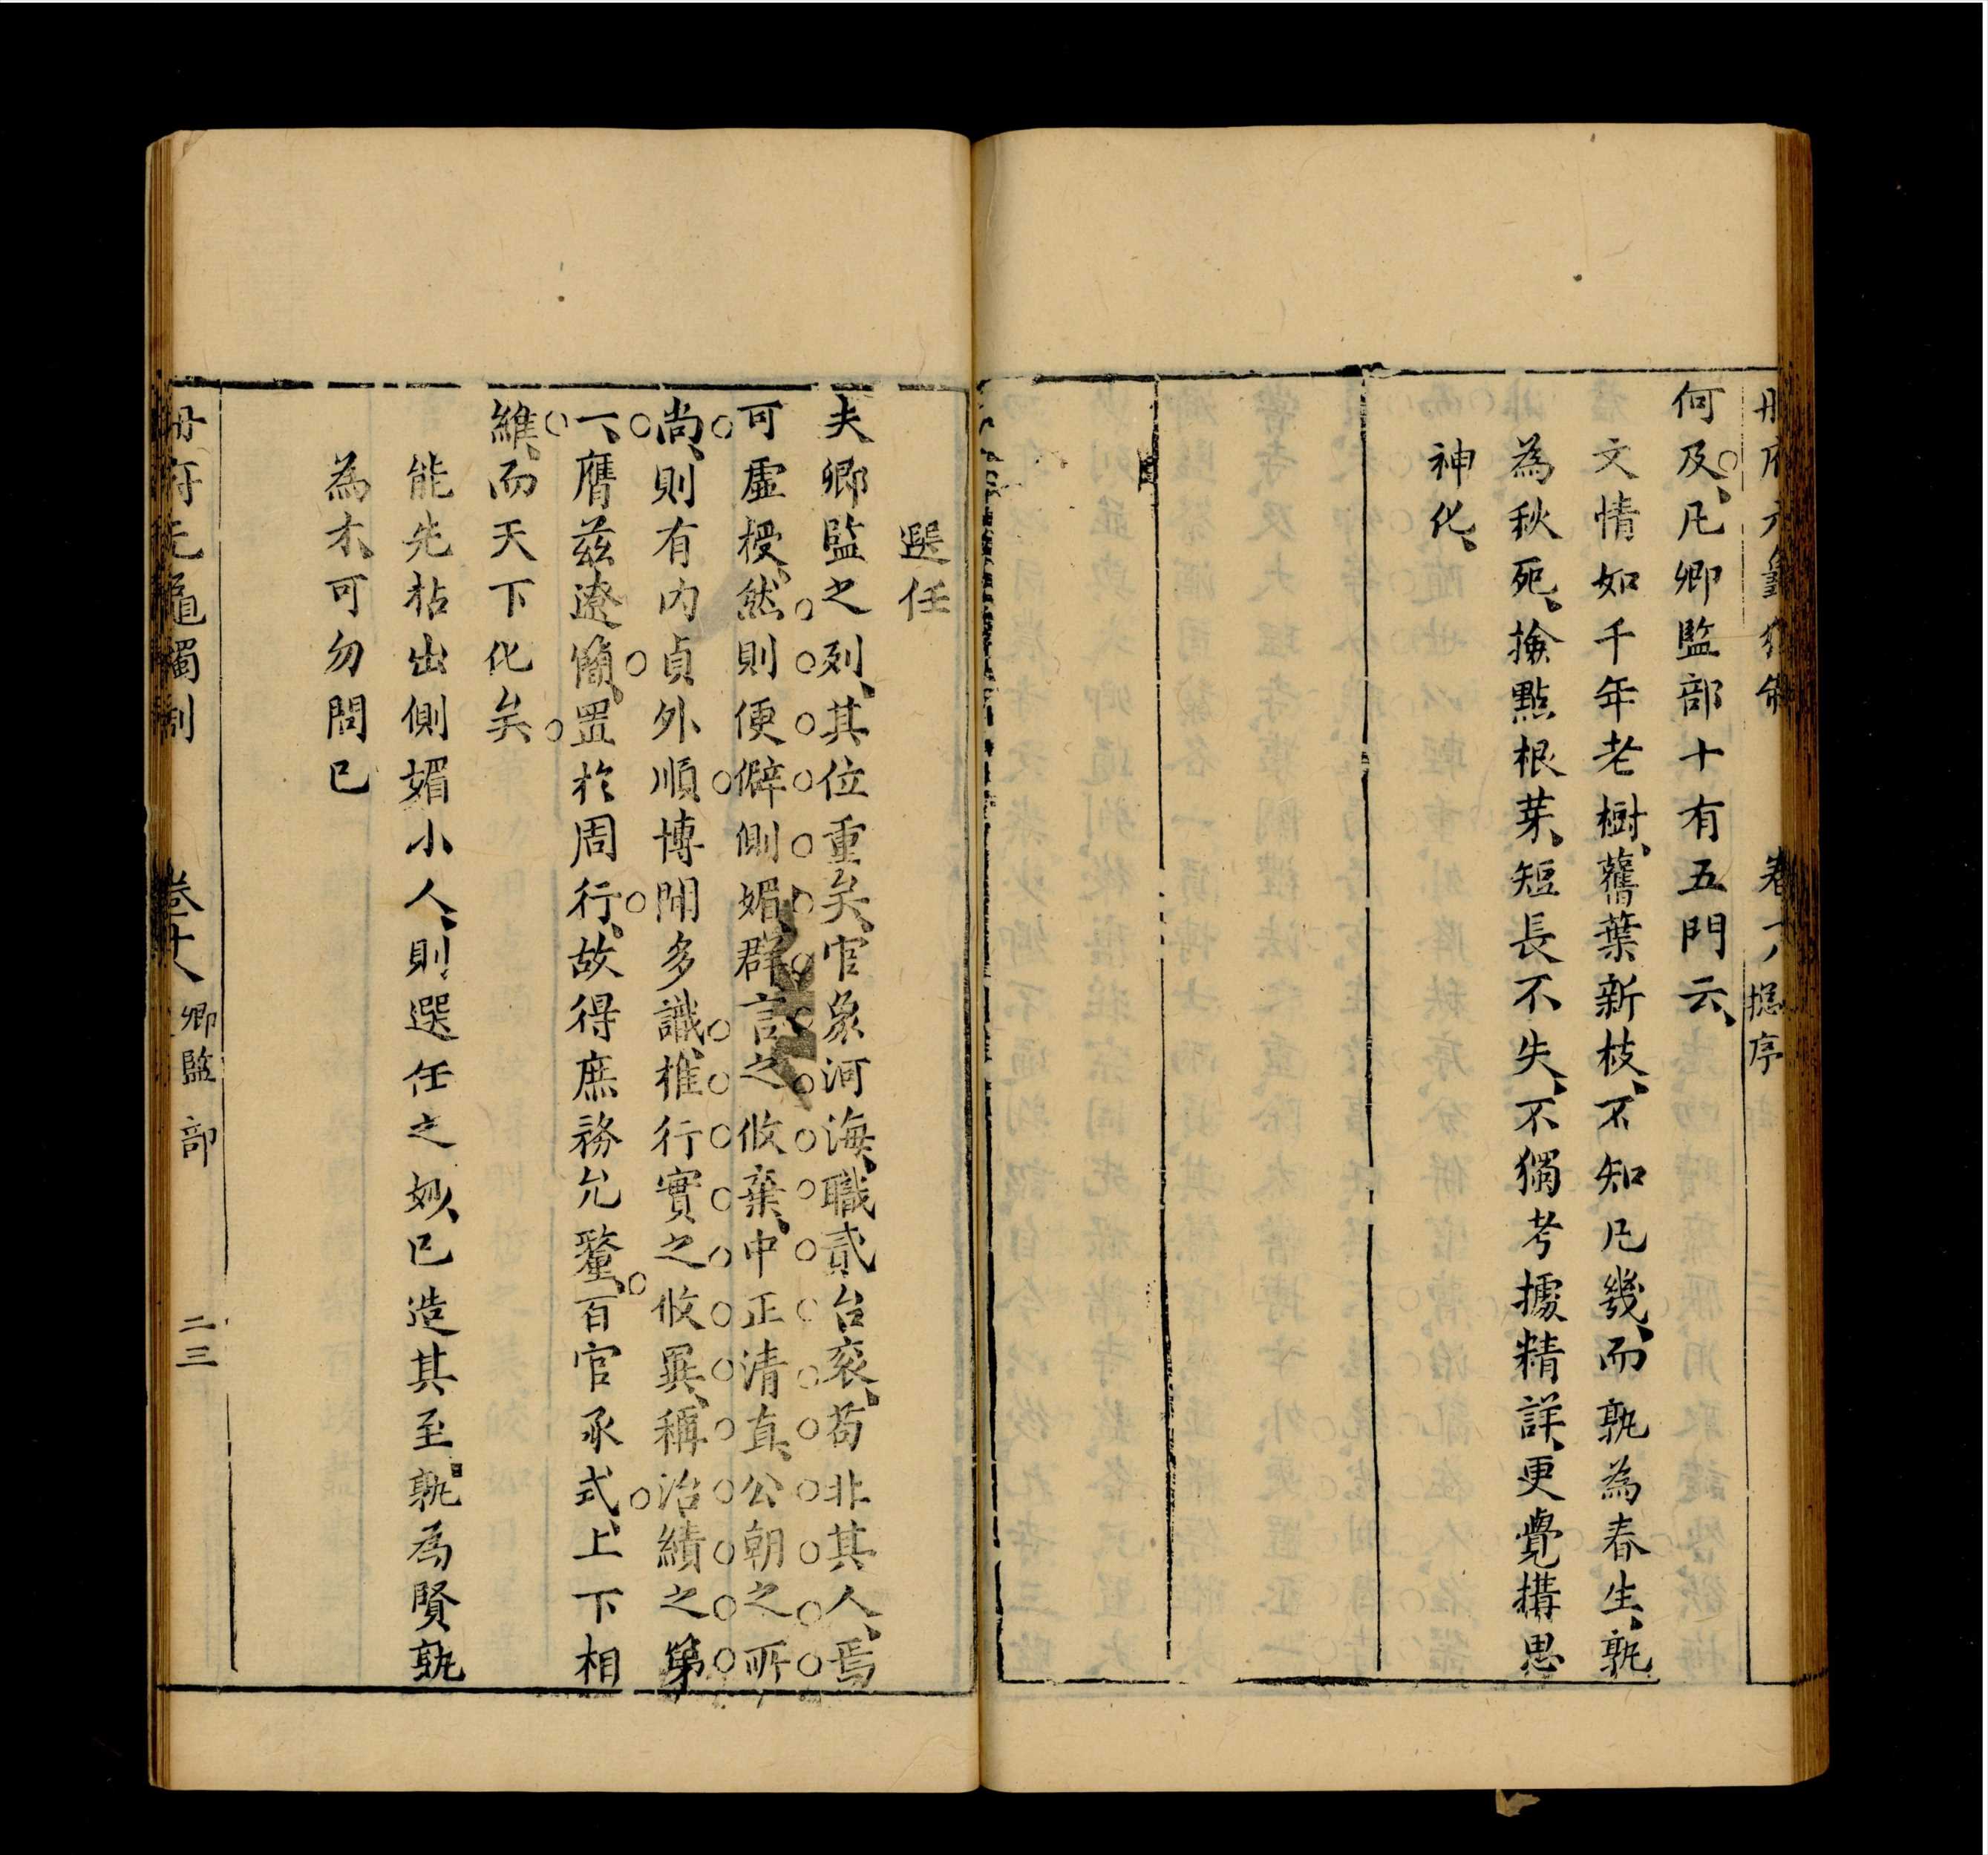 冊府元龜獨制 卷十八 總序
何及、凡卿監部十有五門云、
文情如千年老樹、舊葉新枝、不知凡幾、而孰為春生、孰
為秋死、撿點根芽、短長不失、不獨考據精詳、更覺搆思
神化、
選任
夫卿監之列、其位重矣、官象河海、職貳台袞、苟非其人、焉
可虛授、然則便僻側媚、群言之攸棄、中正清直、公朝之所
尚、則有內貞外順、博聞多識、推行實之攸異、稱治績之第
一、膺茲遴簡、置於周行、故得庶務允釐、百官承式、上下相
維、而天下化矣
能先拈出側媚小人、則選任之妙、已造其至、孰為賢孰
為不、可勿問已
冊府元龜獨制 卷十八 卿監部 二三